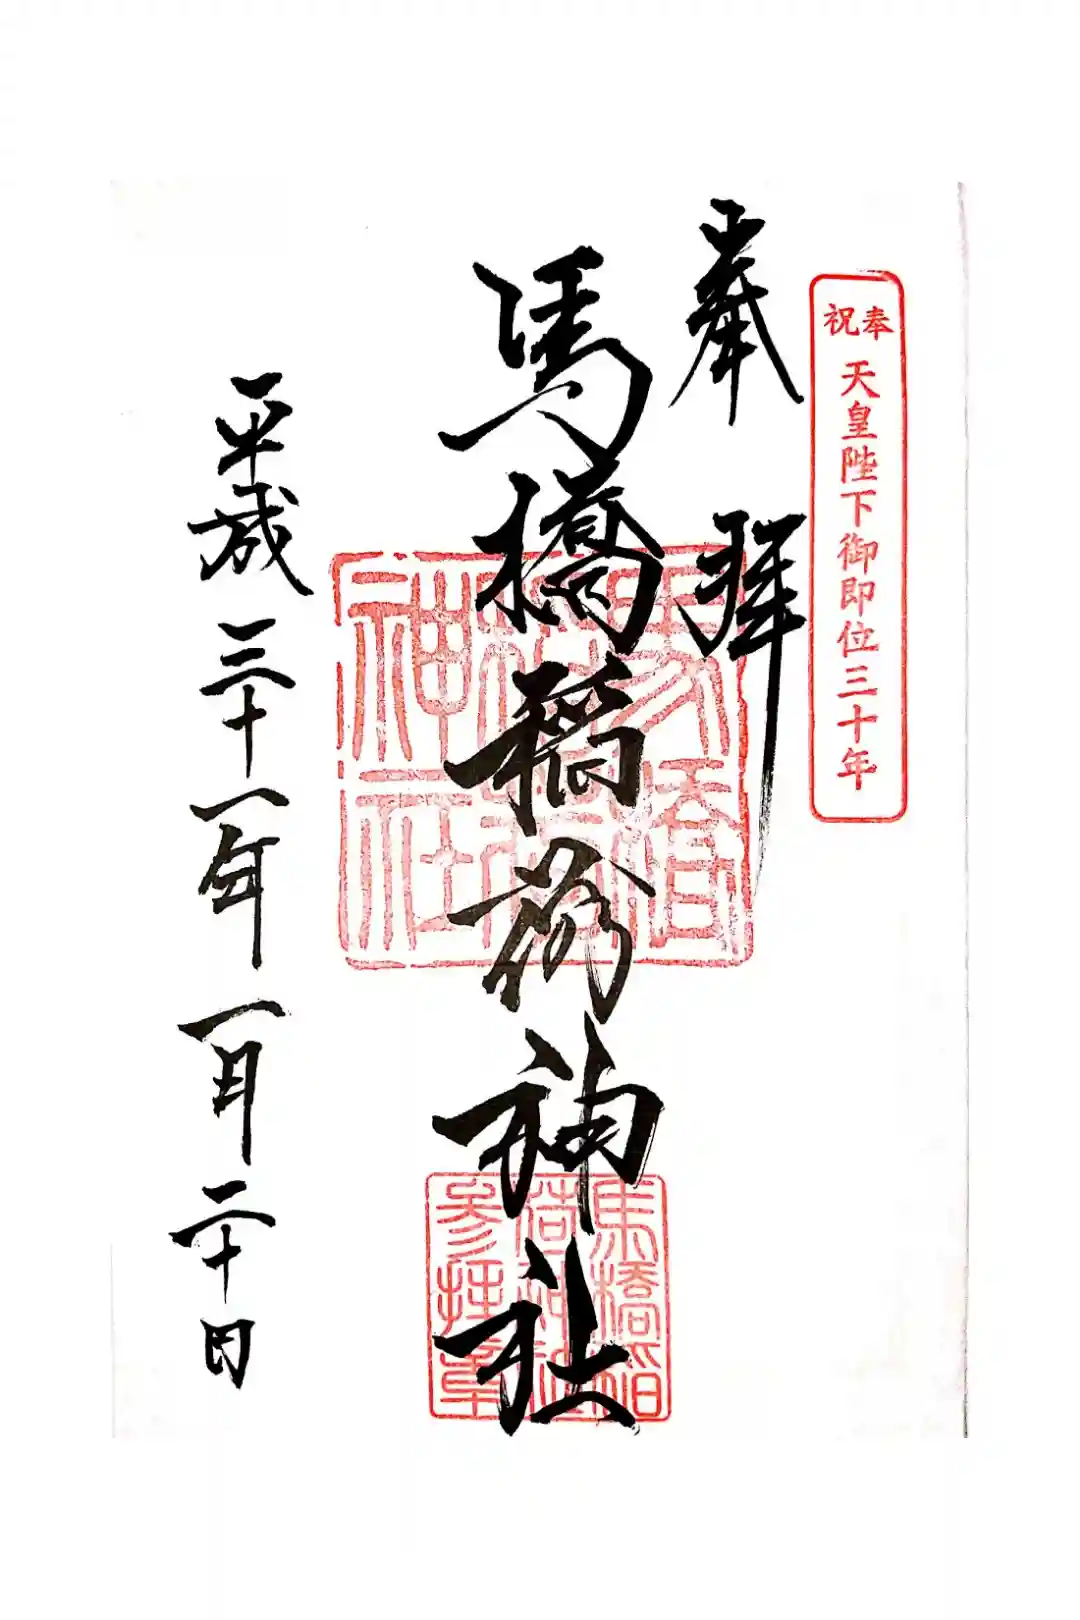 奉祝
天皇陛下御即位三十年
奉拝
馬橋稲荷神社
馬橋
稲荷
神社
馬橋稲
荷神社
参拝章
平成三十一年一月二十日